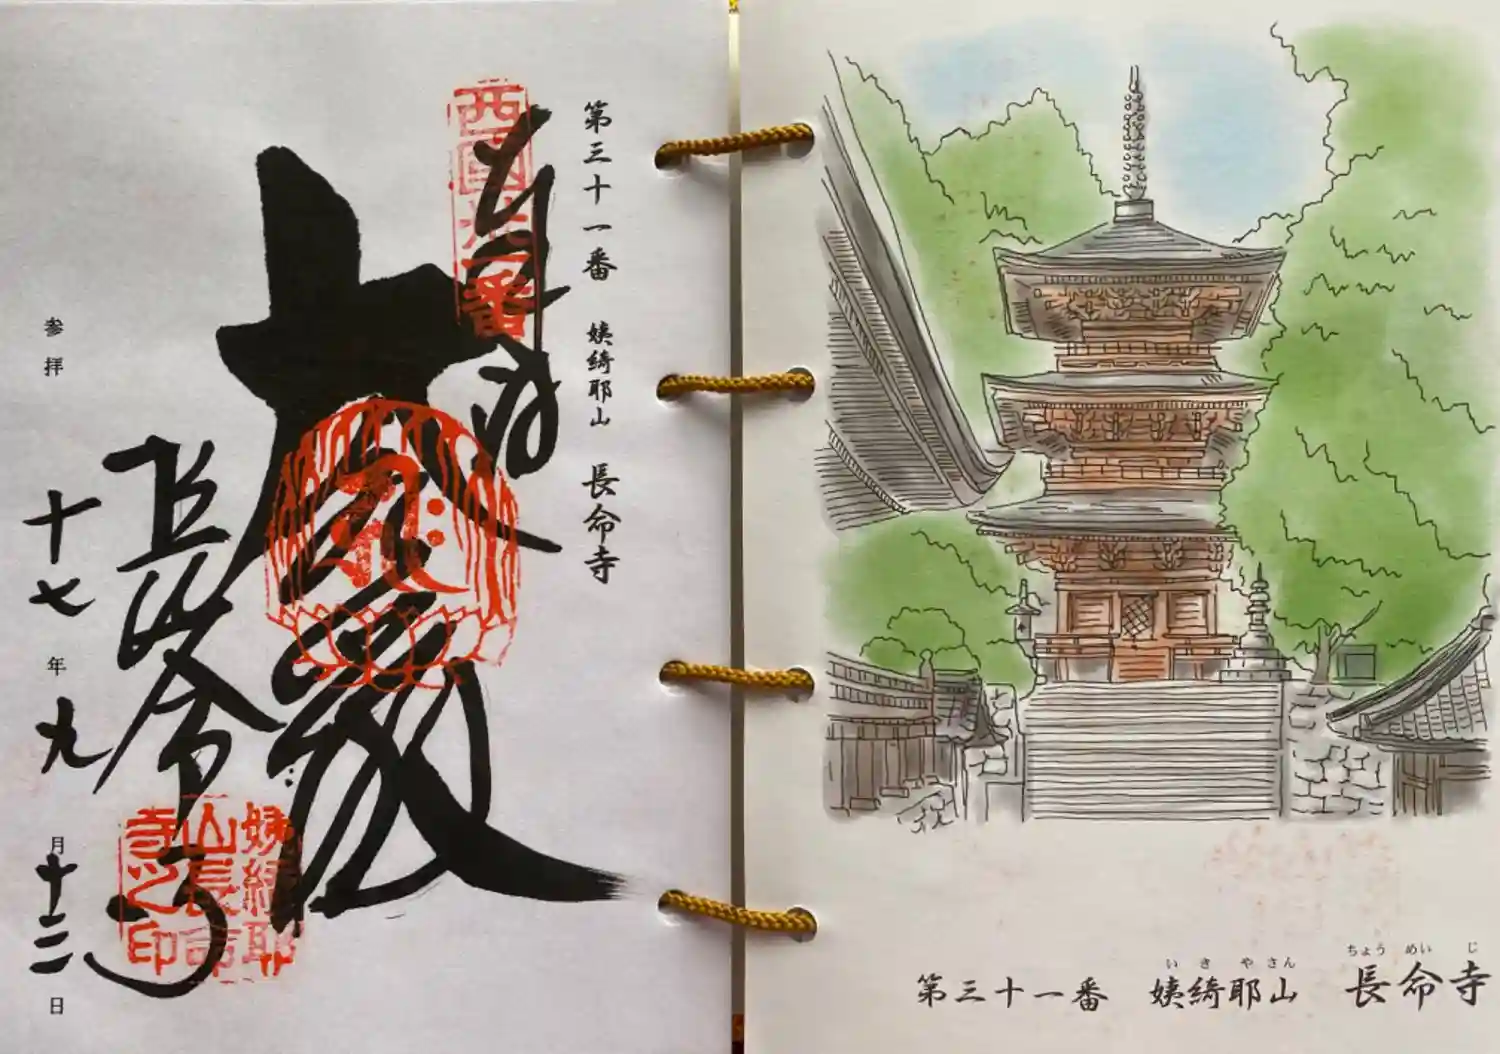 第三十一番 姨綺耶山 長命寺
西國卅一番
奉拝
長命寺
姨綺耶
山長命
寺之印
参拝 十七年九月十三日
いきやさん ちょうめいじ
第三十一番 姨綺耶山 長命寺